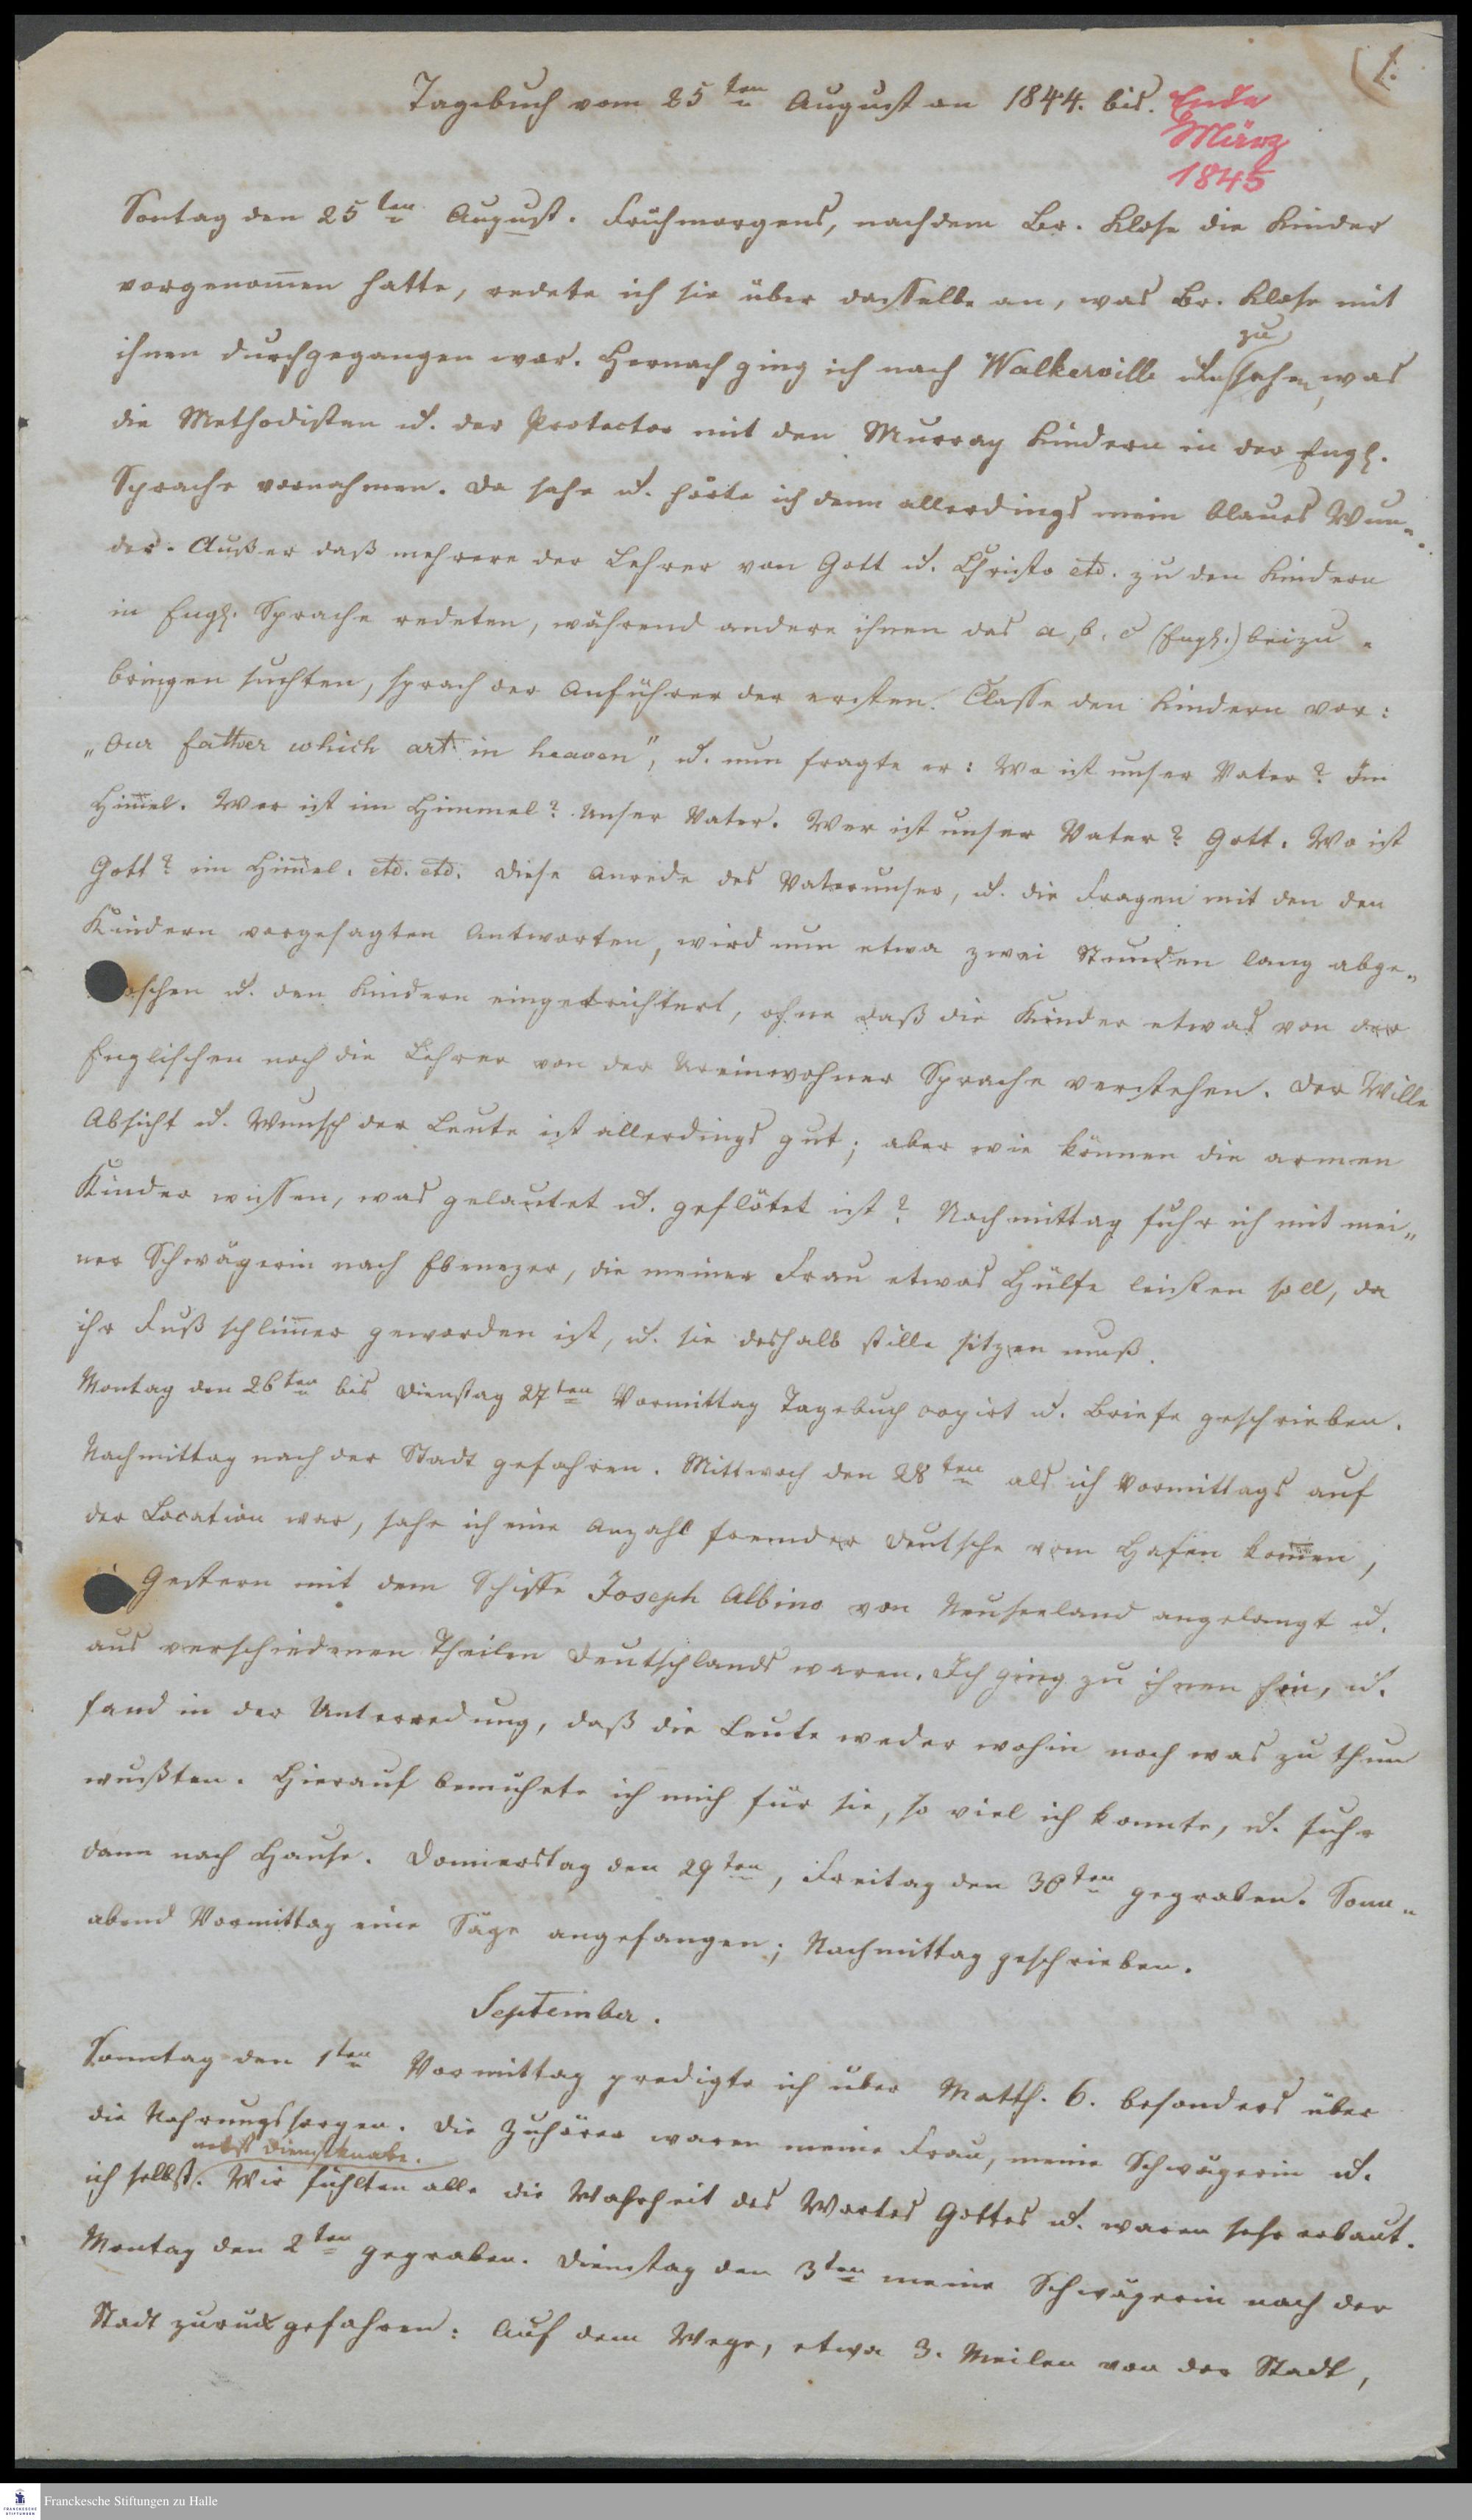 1.
Tagebuch vom 25ten August an 1844. bis. Ende
März
1845
Sontag den 25ten August. Frühmorgens, nachdem Br. Klose die Kinder
vorgenom̅en hatte, redete ich sie über dasselbe an, was Br. Klose mit
ihnen durchgegangen war. Hernach ging ich nach Walkerville um zu sehen, was
die Methodisten u. der Protector mit den Murray Kindern in der Engl.
Sprache vornahmen. Da sahe u. hörte ich denn allerdings mein blaues Wun-
der. Außer daß mehrere der Lehrer von Gott u. Christo etc. zu den Kindern
in Engl. Sprache redeten, während andere ihnen das a, b, c (Engl.) beizu-
bringen suchten, sprach der Anführer der ersten Classe den Kindern vor:
„Our father which art in heaven", u. nun fragte er: Wo ist unser Vater? Im
Him̅el. Wer ist im Himmel? Unser Vater. Wer ist unser Vater? Gott. Wo ist
Gott? im Him̅el. etc. etc. Diese Anrede des Vaterunser, u. die Fragen mit den den
Kindern vorgesagten Antworten, wird nun etwa zwei Stunden lang abge-
oschen u. den Kindern eingetrichtert, ohne daß die Kinder etwas von der
Englischen noch die Lehrer von der Ureinwohner Sprache verstehen. Der Wille
Absicht u. Wunsch der Leute ist allerdings gut; aber wie können die armen
Kinder wissen, was gelautet u. geflötet ist? Nachmittag fuhr ich mit mei-
ner Schwägerin nach Ebenezer, die meiner Frau etwas Hülfe leisten soll, da
ihr Fuß schlim̅er geworden ist, u. sie deshalb stille sitzen muß.
Montag den 26ten bis Dienstag 27ten Vormittag Tagebuch copirt u. Briefe geschrieben.
Nachmittag nach der Stadt gefahren. Mittwoch den 28ten als ich Vormittags auf
der Location war, sahe ich eine Anzahl fremder Deutsche vom Hafen kom̅en,
Gestern mit dem Schiffe Joseph Albino von Neuseeland angelangt u.
aus verschiedenen Theilen Deutschlands waren. Ich ging zu ihnen hin, u.
fand in der Unterredung, daß die Leute weder wohin noch was zu thun
wußten. Hierauf bemühete ich mich für sie, so viel ich konnte, u. fuhr
dann nach Hause. Donnerstag den 29ten, Freitag den 30ten gegraben. Sonn-
abend Vormittag eine Säge angefangen; Nachmittag geschrieben.
September.
Sonntag den 1ten Vormittag predigte ich über Matth. 6. besonders über
die Nahrungssorgen. Die Zuhörer waren meine Frau, meine Schwägerin u.
nebst Dienstknabe.
ich selbst. Wir fühlten alle die Wahrheit des Wortes Gottes u. waren sehr erbaut.
Montag den 2ten gegraben. Dienstag den 3ten meine Schwägerin nach der
Stadt zurückgefahren: Auf dem Wege, etwa 3. Meilen von der Stadt,
Franckesche Stiftungen zu Halle